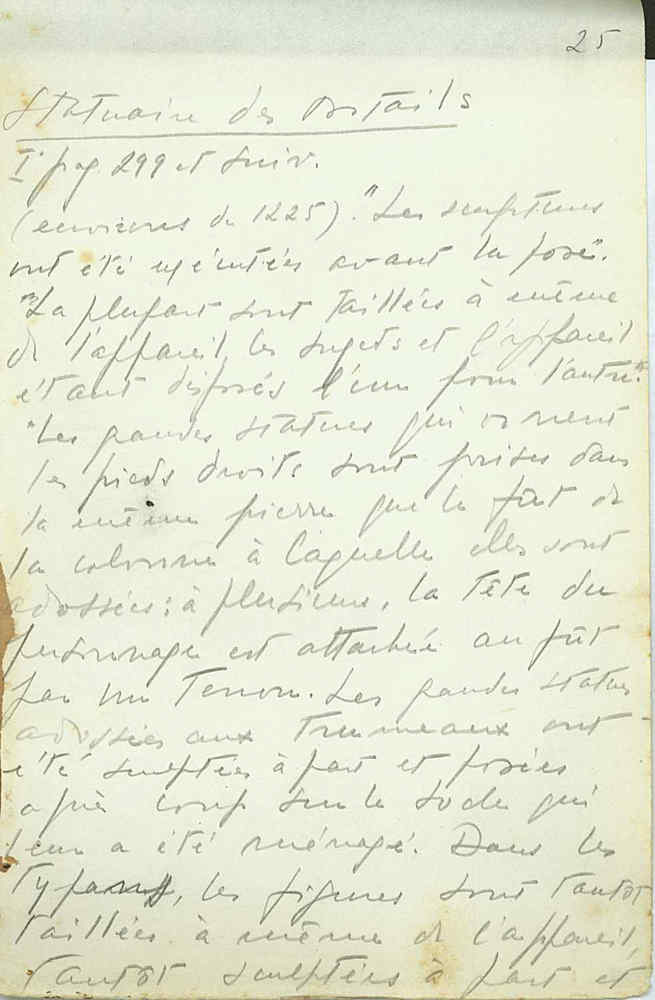 25
Statuaire des Portails
I. pag 299 et suiv.
(environs de 1225). "Les sculptures
ont été exécutées avant la pose".
"La plupart sont taillées à même
de l'appareil, les sujets et l'appareil
étant disposés l'un pour l'autre".
"Les grandes statues qui ornent
les pieds droits sont prises dans
la même pierre que le fût de
la colonne à laquelle elles sont
adossées : à plusieurs, la tête du
personnage est attachée au fût
par un tenon. Les grandes statues
adossées aux trumeaux ont
été sculptées à part et posées
après coup sur le socle qui
leur a été ménagé. Dans les
tympans, les figures sont tantôt
taillées à même de l'appareil,
tantôt sculptées à part et